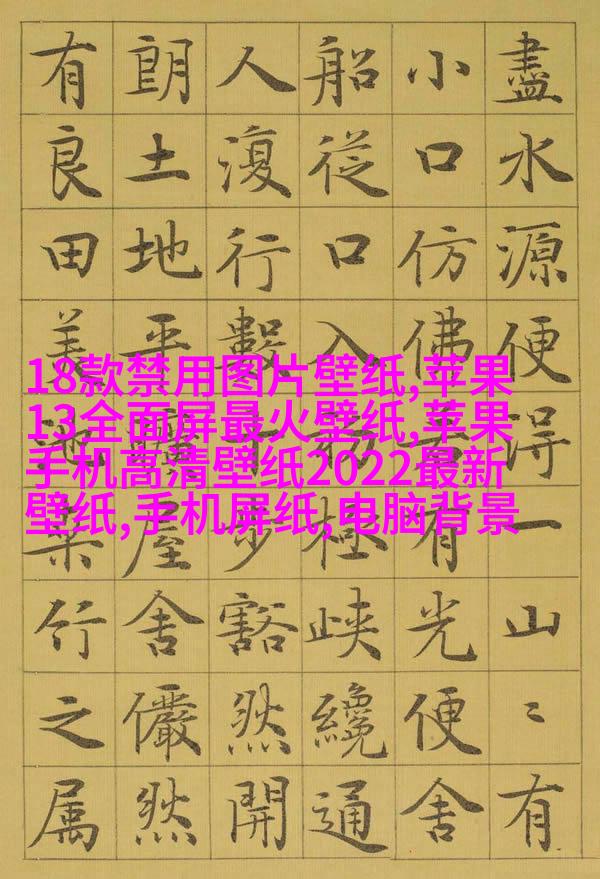 18款禁用图片壁纸,苹果
13全面屏最火壁纸,苹果
手机高清壁纸2022最新
壁纸,手机屏纸,电脑背景
盡水源便得一山〻有
小口仿佛若有光便舍
船從口入初極峽纔通
人復行數十步豁然開
朗土地平曠屋舍儼然
有良田美池桑竹之属